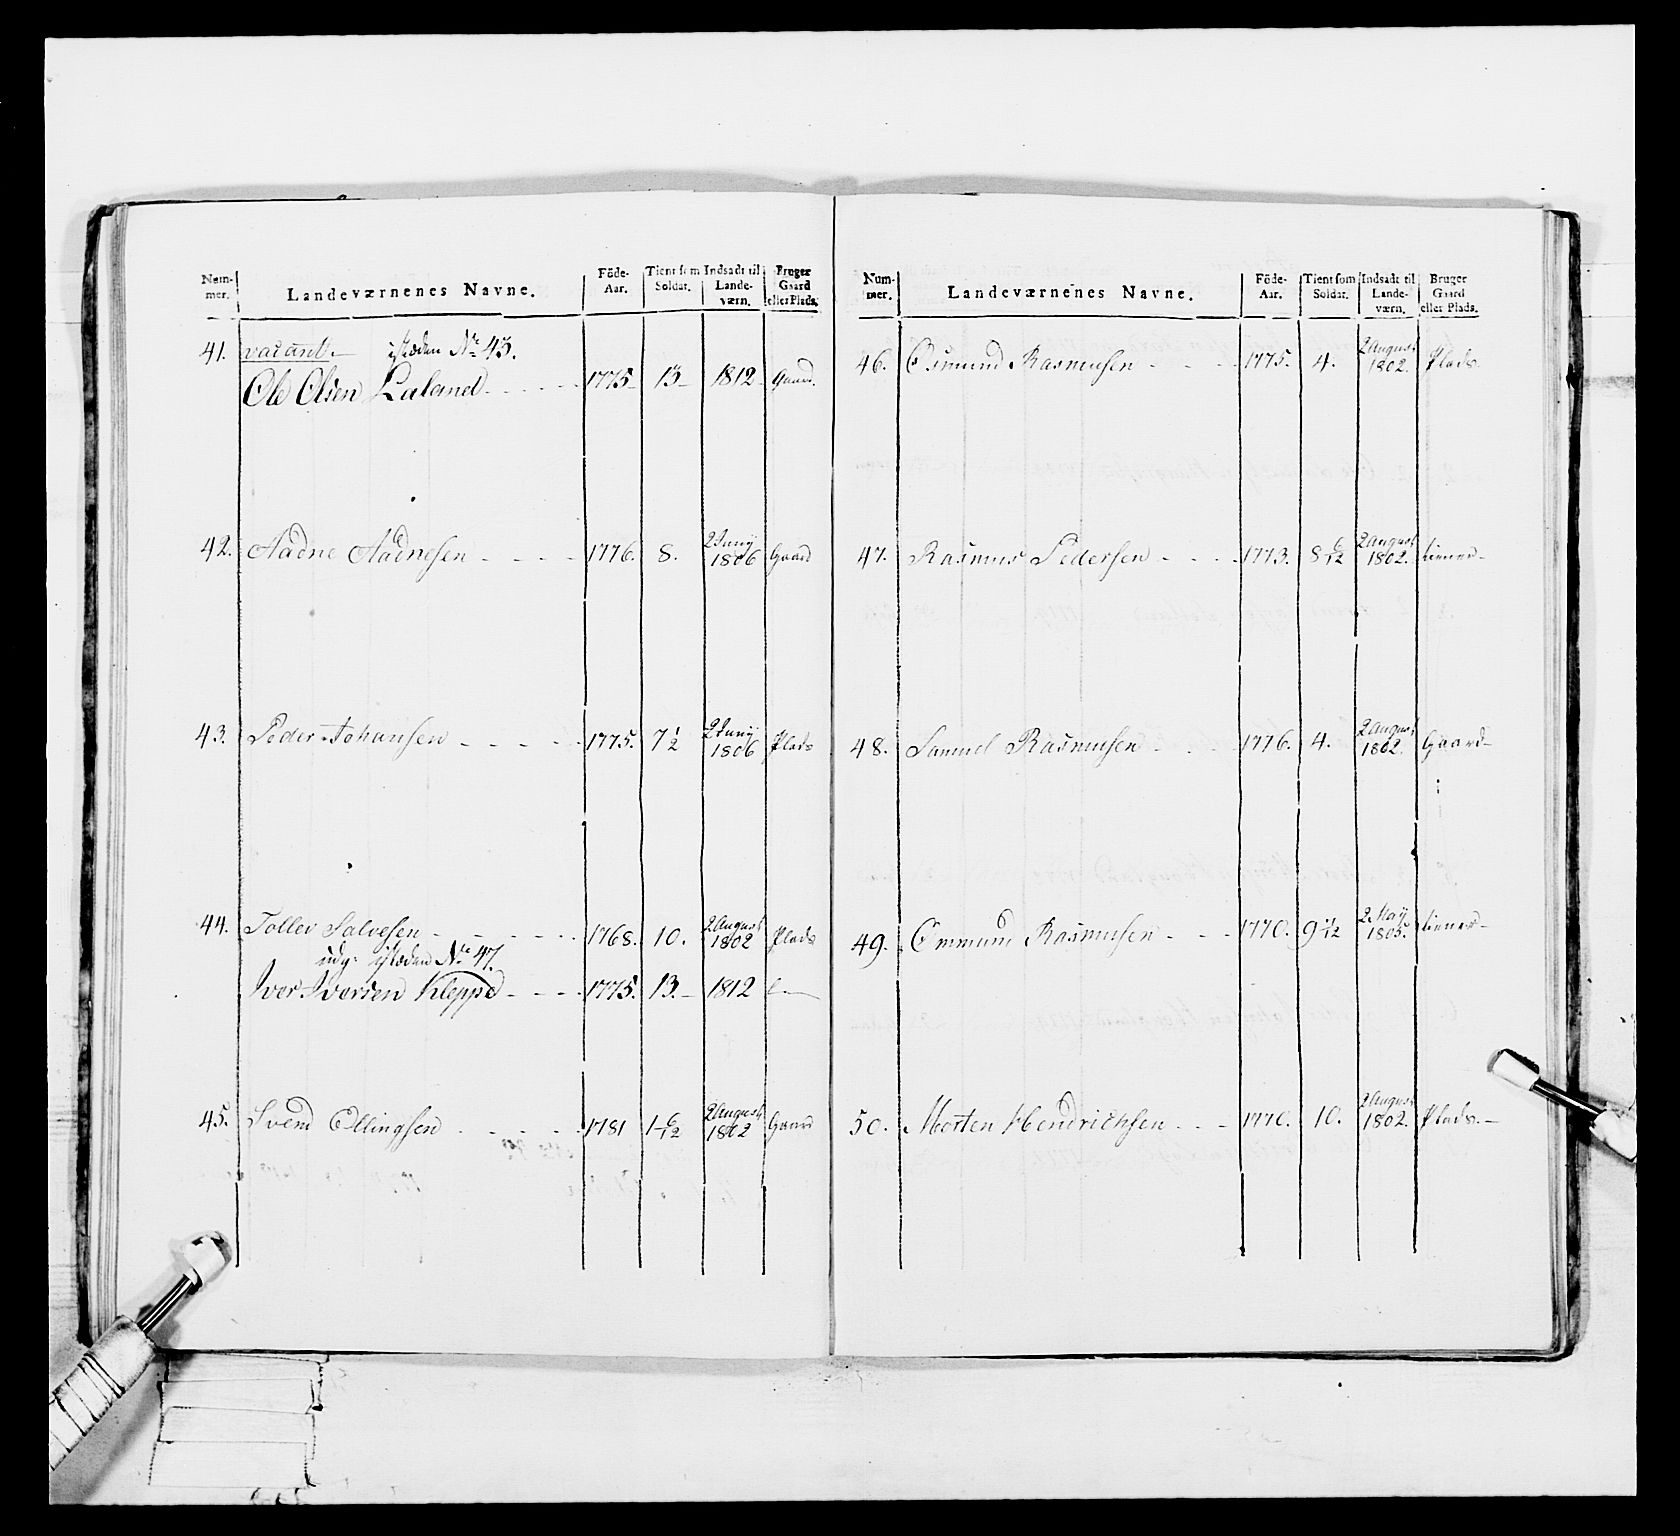 Num-
mer.
Landeværnenes Navne.
Föde-
Aar.
Tient som
Soldat.
Indsadt til
Lande-
værn.
Bruger
Gaard
eller Plads.
41. vacant. istæden No 43.
Ole Olsen Laland 1775 13 1812 Gaard.
42. Aadne Aadnesen 1776. 8. 2 Junij 1806 Gaard
43. Peder Johansen 1775. 7 1/2 2 Junij 1806 Plads
44. Tollev Salvesen 1768. 10. 2 August 1802 Plads
udg. istæden No 47.
Iver Iversen Kleppe 1775. 13. 1812
45. Svend Ellingsen 1781 1 6/12 2 August 1802 Gaard
Num-
mer.
Landeværnenes Navne.
Föde-
Aar.
Tient som
Soldat.
Indsadt til
Lande-
værn.
Bruger
Gaard
eller Plads.
46. Osmund Rasmusen 1775. 4. 2 August 1802. Plads
47. Rasmus Pedersen 1773. 8 6/12 2 August 1802. tiener
48. Samuel Rasmusen 1776. 4. 2 August 1802. Gaard
49. Ommund Rasmusen 1770. 9 11/12 2 May 1805. tiener
50. Morten Hendrichsen 1770. 10. 2 August 1802. Plads.